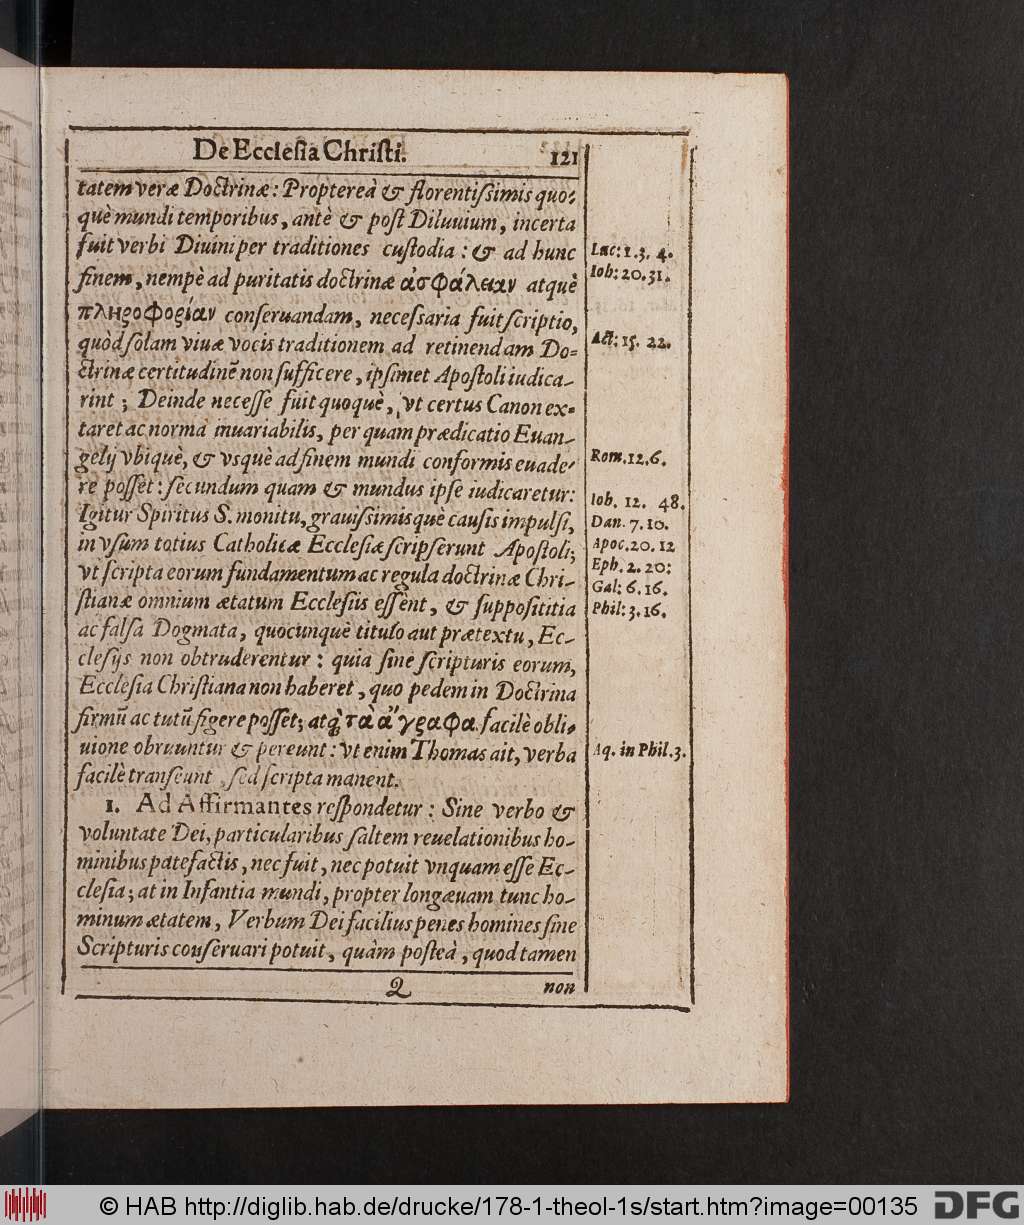 De Ecclesia Christi. 121
tatem veræ Doctrinæ: Propterea & florentissimis quo-
què mundi temporibus, antè & post Diluuium, incerta
fuit verbi Diuini per traditiones custodia: & ad hunc
finem, nempè ad puritatis doctrinæ ἀσφάλειαν atquè
πληροφορίαν conseruandam, necessaria fuit scriptio,
quòd solam viuæ vocis traditionem ad retinendam Do-
ctrinæ certitudinẽ non sufficere, ipsimet Apostoli iudica-
rint; Deinde necesse fuit quoquè, vt certus Canon ex-
taret ac norma inuariabilis, per quam prædicatio Euan-
gelij vbiquè, & vsquè ad finem mundi conformis euade-
re posset: secundum quam & mundus ipse iudicaretur:
Igitur Spiritus S. monitu, grauissimisquè causis impulsi,
in vsum totius Catholicæ Ecclesiæ scripserunt Apostoli;
vt scripta eorum fundamentum ac regula doctrinæ Chri-
stianæ omnium ætatum Ecclesiis essent, & supposititia
ac falsa Dogmata, quocunquè titulo aut prætextu, Ec-
clesijs non obtruderentur: quia sine scripturis eorum,
Ecclesia Christiana non haberet, quo pedem in Doctrina
firmũ ac tutũ figere posset; atq̃ τὰ ἄγραφα facilè obli-
uione obruuntur & pereunt: vt enim Thomas ait, verba
facilè transeunt, sed scripta manent.
1. Ad Affirmantes respondetur: Sine verbo &
voluntate Dei, particularibus saltem reuelationibus ho-
minibus patefactis, nec fuit, nec potuit vnquam esse Ec-
clesia; at in Infantia mundi, propter longæuam tunc ho-
minum ætatem, Verbum Dei facilius penes homines sine
Scripturis conseruari potuit, quàm posteà, quod tamen
Q non
Luc: 1. 3. 4.
Ioh: 20. 31.
Act: 15. 22.
Rom. 12. 6.
Ioh. 12. 48.
Dan. 7. 10.
Apoc. 20. 12
Eph. 2. 20:
Gal: 6. 16.
Phil: 3. 16.
Aq. in Phil. 3.
© HAB http://diglib.hab.de/drucke/178-1-theol-1s/start.htm?image=00135 DFG